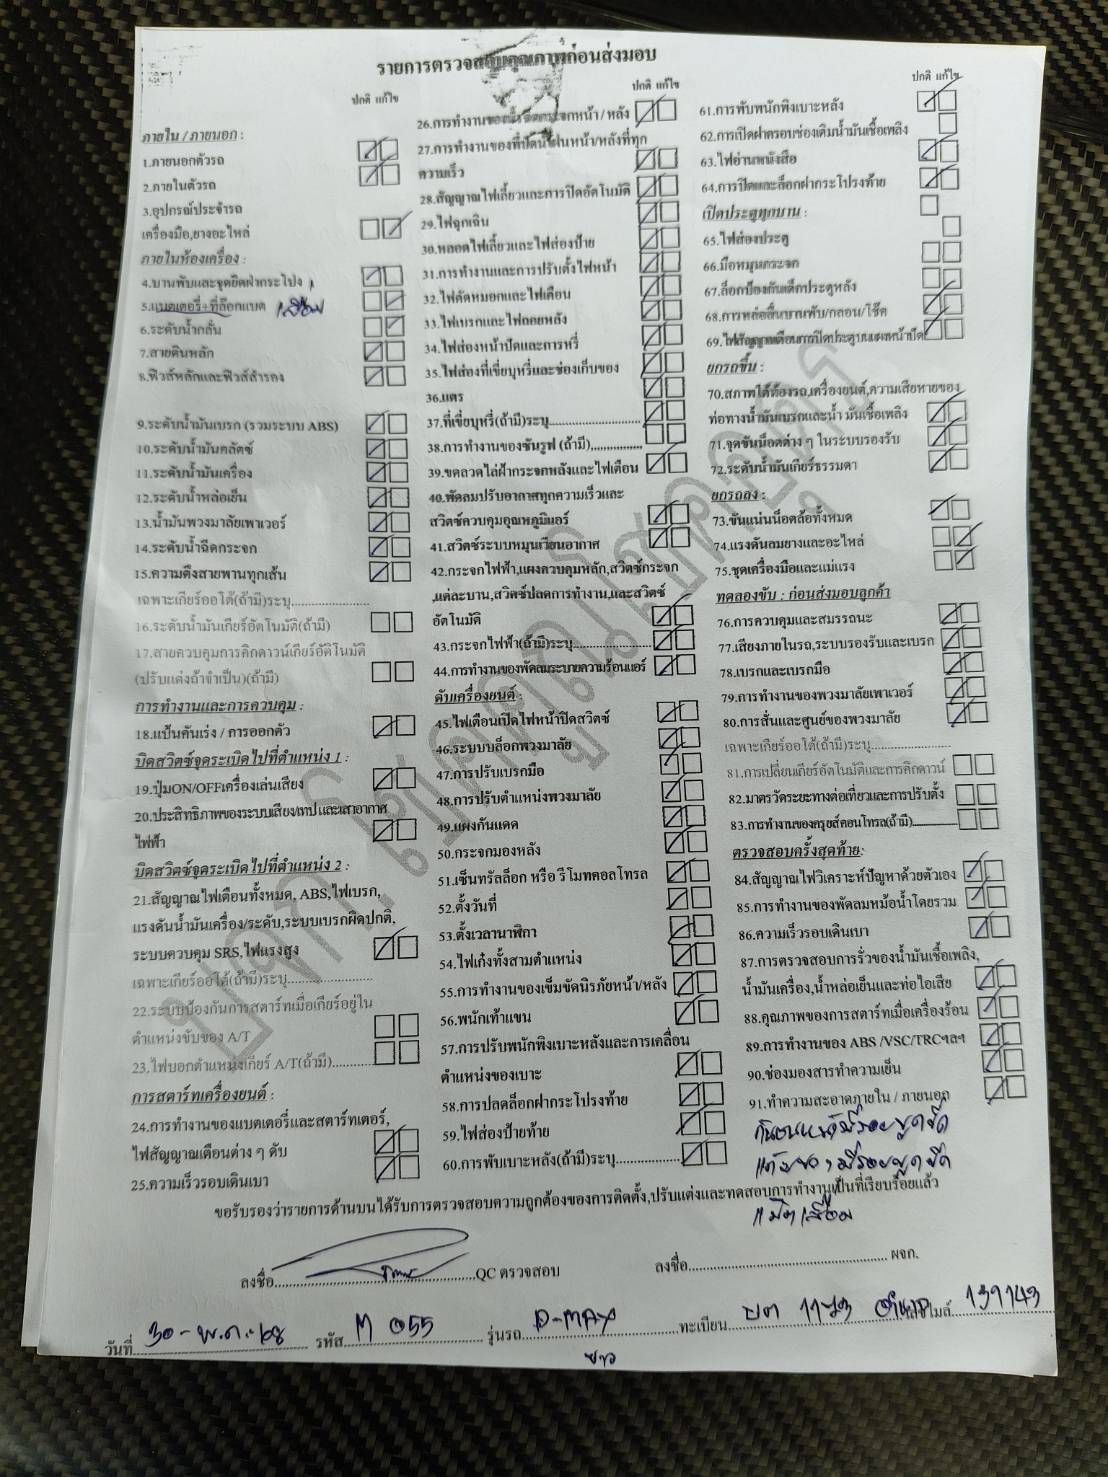 รายการตรวจสอบคุณภาพก่อนส่งมอบ
ปกติ แก้ไข
ภายใน / ภายนอก :
1.ภายนอกตัวรถ
2.ภายในตัวรถ
3.อุปกรณ์ประจำรถ
เครื่องมือ,ยางอะไหล่
ภายในห้องเครื่อง :
4.บานพับและชุดยึดฝากระโปง
5.แบตเตอรี่+ที่ล็อกแบต เสื่อม
6.ระดับน้ำกลั่น
7.สายดินหลัก
8.ฟิวส์หลักและฟิวส์สำรอง
9.ระดับน้ำมันเบรก (รวมระบบ ABS)
10.ระดับน้ำมันคลัตช์
11.ระดับน้ำมันเครื่อง
12.ระดับน้ำหล่อเย็น
13.น้ำมันพวงมาลัยเพาเวอร์
14.ระดับน้ำฉีดกระจก
15.ความตึงสายพานทุกเส้น
เฉพาะเกียร์ออโต้(ถ้ามี)ระบุ......................
16.ระดับน้ำมันเกียร์อัตโนมัติ(ถ้ามี)
17.สายควบคุมการคิกดาวน์เกียร์อัติโนมัติ
(ปรับแต่งถ้าจำเป็น)(ถ้ามี)
การทำงานและการควบคุม :
18.แป้นคันเร่ง / การออกตัว
บิดสวิตช์จุดระเบิดไปที่ตำแหน่ง 1 :
19.ปุ่มON/OFFเครื่องเล่นเสียง
20.ประสิทธิภาพของระบบเสียง/เทป และเสาอากาศ
ไฟฟ้า
บิดสวิตช์จุดระเบิดไปที่ตำแหน่ง 2 :
21.สัญญาณไฟเตือนทั้งหมด, ABS,ไฟเบรก,
แรงดันน้ำมันเครื่อง/ระดับ,ระบบเบรกผิดปกติ,
ระบบควบคุม SRS,ไฟแรงสูง
เฉพาะเกียร์ออโต้(ถ้ามี)ระบุ......................
22.ระบบป้องกันการสตาร์ทเมื่อเกียร์อยู่ใน
ตำแหน่งขับของ A/T
23.ไฟบอกตำแหน่งเกียร์ A/T(ถ้ามี)............
การสตาร์ทเครื่องยนต์ :
24.การทำงานของแบตเตอรี่และสตาร์ทเตอร์,
ไฟสัญญาณเตือนต่าง ๆ ดับ
25.ความเร็วรอบเดินเบา
ปกติ แก้ไข
26.การทำงานของ กระจกหน้า / หลัง
27.การทำงานของที่ปัดน้ำฝนหน้า/หลังที่ทุก
ความเร็ว
28.สัญญาณไฟเลี้ยวและการปิดอัตโนมัติ
29.ไฟฉุกเฉิน
30.หลอดไฟเลี้ยวและไฟส่องป้าย
31.การทำงานและการปรับตั้งไฟหน้า
32.ไฟตัดหมอกและไฟเตือน
33.ไฟเบรกและไฟถอยหลัง
34.ไฟส่องหน้าปัดและการหรี่
35.ไฟส่องที่เขี่ยบุหรี่และช่องเก็บของ
36.แตร
37.ที่เขี่ยบุหรี่(ถ้ามี)ระบุ............................
38.การทำงานของซันรูฟ (ถ้ามี)...............
39.ขดลวดไล่ฝ้ากระจกหลังและไฟเตือน
40.พัดลมปรับอากาศทุกความเร็วและ
สวิตช์ควบคุมอุณหภูมิแอร์
41.สวิตซ์ระบบหมุนเวียนอากาศ
42.กระจกไฟฟ้า,แผงควบคุมหลัก,สวิตช์กระจก
,แต่ละบาน,สวิตช์ปลดการทำงาน,และสวิตช์
อัตโนมัติ
43.กระจกไฟฟ้า(ถ้ามี)ระบุ......................
44.การทำงานของพัดลมระบายความร้อนแอร์
ดับเครื่องยนต์ :
45.ไฟเตือนเปิดไฟหน้าปิดสวิตช์
46.ระบบบล็อกพวงมาลัย
47.การปรับเบรกมือ
48.การปรับตำแหน่งพวงมาลัย
49.แผงกันแดด
50.กระจกมองหลัง
51.เซ็นทรัลล็อก หรือ รีโมทคอลโทรล
52.ตั้งวันที่
53.ตั้งเวลานาฬิกา
54.ไฟเก๋งทั้งสามตำแหน่ง
55.การทำงานของเข็มขัดนิรภัยหน้า/หลัง
56.พนักเท้าแขน
57.การปรับพนักพิงเบาะหลังและการเคลื่อน
ตำแหน่งของเบาะ
58.การปลดล็อกฝากระโปรงท้าย
59.ไฟส่องป้ายท้าย
60.การพับเบาะหลัง(ถ้ามี)ระบุ..................
ปกติ แก้ไข
61.การพับพนักพิงเบาะหลัง
62.การเปิดฝาครอบช่องเติมน้ำมันเชื้อเพลิง
63.ไฟอ่านหนังสือ
64.การปิดและล็อกฝากระโปรงท้าย
เปิดประตูทุกบาน :
65.ไฟส่องประตู
66.มือหมุนกระจก
67.ล็อกป้องกันเด็กประตูหลัง
68.การหล่อลื่นบานพับ/กลอน/โช๊ค
69.ไฟสัญญาณเตือนการปิดประตูบนแผงหน้าปัด
ยกรถขึ้น :
70.สภาพใต้ท้องรถ,เครื่องยนต์,ความเสียหายของ
ท่อทางน้ำมันเบรกและน้ำ มันเชื้อเพลิง
71.จุดขันน็อตต่าง ๆ ในระบบรองรับ
72.ระดับน้ำมันเกียร์ธรรมดา
ยกรถลง :
73.ขันแน่นน็อตล้อทั้งหมด
74.แรงดันลมยางและอะไหล่
75.ชุดเครื่องมือและแม่แรง
ทดลองขับ : ก่อนส่งมอบลูกค้า
76.การควบคุมและสมรรถนะ
77.เสียงภายในรถ,ระบบรองรับและเบรก
78.เบรกและเบรกมือ
79.การทำงานของพวงมาลัยเพาเวอร์
80.การสั่นและศูนย์ของพวงมาลัย
เฉพาะเกียร์ออโต้(ถ้ามี)ระบุ......................
81.การเปลี่ยนเกียร์อัตโนมัติและการคิกดาวน์
82.มาตรวัดระยะทางต่อเที่ยวและการปรับตั้ง
83.การทำงานของครุยส์คอนโทรล(ถ้ามี)............
ตรวจสอบครั้งสุดท้าย:
84.สัญญาณไฟวิเคราะห์ปัญหาด้วยตัวเอง
85.การทำงานของพัดลมหม้อน้ำโดยรวม
86.ความเร็วรอบเดินเบา
87.การตรวจสอบการรั่วของน้ำมันเชื้อเพลิง,
น้ำมันเครื่อง,น้ำหล่อเย็นและท่อไอเสีย
88.คุณภาพของการสตาร์ทเมื่อเครื่องร้อน
89.การทำงานของ ABS /VSC/TRCฯลฯ
90.ช่องมองสารทำความเย็น
91.ทำความสะอาดภายใน / ภายนอก
กันชนหน้ามีรอยขูดขีด
มีรอยขูดขีด
แบ็ตเสื่อม
ขอรับรองว่ารายการด้านบนได้รับการตรวจสอบความถูกต้องของการติดตั้ง,ปรับแต่งและทดสอบการทำงานเป็นที่เรียบร้อยแล้ว
ลงชื่อ..................................................QC ตรวจสอบ
ลงชื่อ.................................................. ผจก.
วันที่ 30-พ.ค.-68 รหัส M 055 รุ่นรถ D-MAX ทะเบียน บต 1123 เลขไมล์ 139143
ขาว